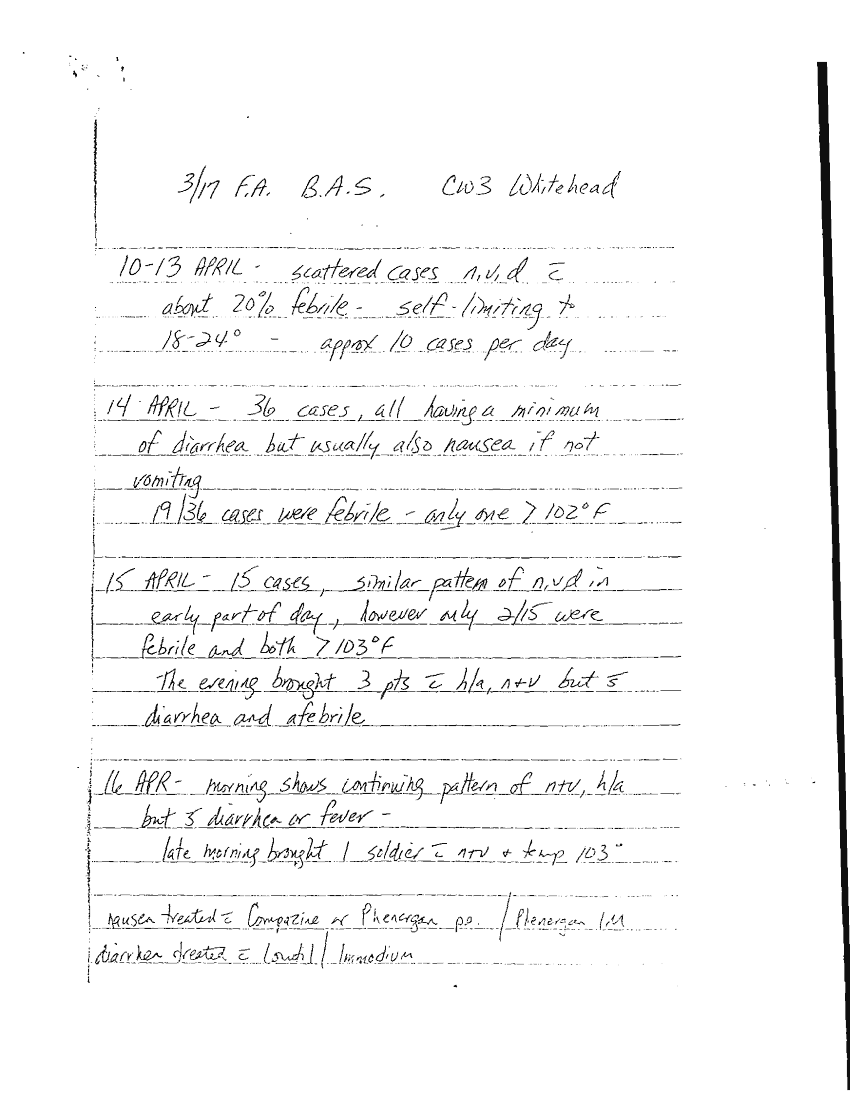 3/17 F.A. B.A.S. CW3 Whitehead
10-13 APRIL - scattered cases n,v,d c̄
about 20% febrile - self-limiting to
18-24° - approx 10 cases per day
14 APRIL - 36 cases, all having a minimum
of diarrhea but usually also nausea if not
vomiting
19/36 cases were febrile - only one > 102°F
15 APRIL - 15 cases, similar pattern of n,v,d in
early part of day, however only 2/15 were
febrile and both > 103°F
The evening brought 3 pts c̄ h/a, n+v but s̄
diarrhea and afebrile
16 APR - morning shows continuing pattern of n+v, h/a
but s̄ diarrhea or fever -
late morning brought 1 soldier c̄ n+v + temp 103°
nausea treated c̄ Compazine or Phenergan po. / Phenergan IM
diarrhea treated c̄ Lomotil / Immodium